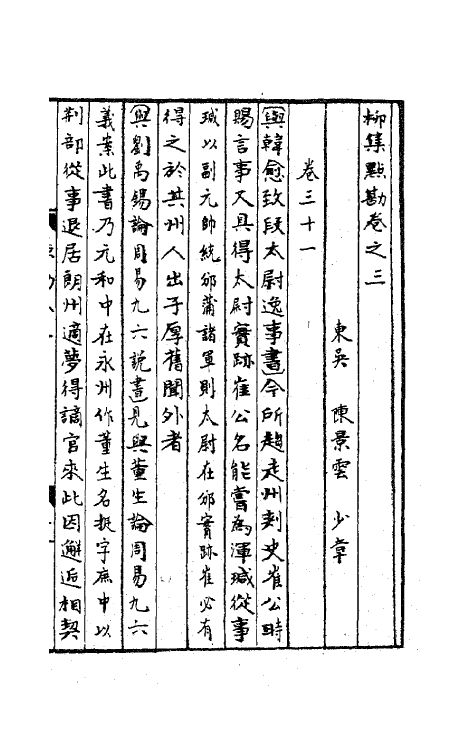 柳集點勘卷之三
東吳　陳景雲　少章
卷三十一
與韓愈致段太尉逸事書今所趨走州刾史崔公時
賜言事又具得太尉實跡崔公名能嘗為渾瑊從事
瑊以副元帥統邠蒲諸軍則太尉在邠實跡崔必有
得之於其州人出子厚舊聞外者
與劉禹錫論周易九六說書見與董生論周易九六
義案此書乃元和中在永州作董生名挺字庶中以
荆部從事退居朗州適夢得謫官來此因邂逅相契